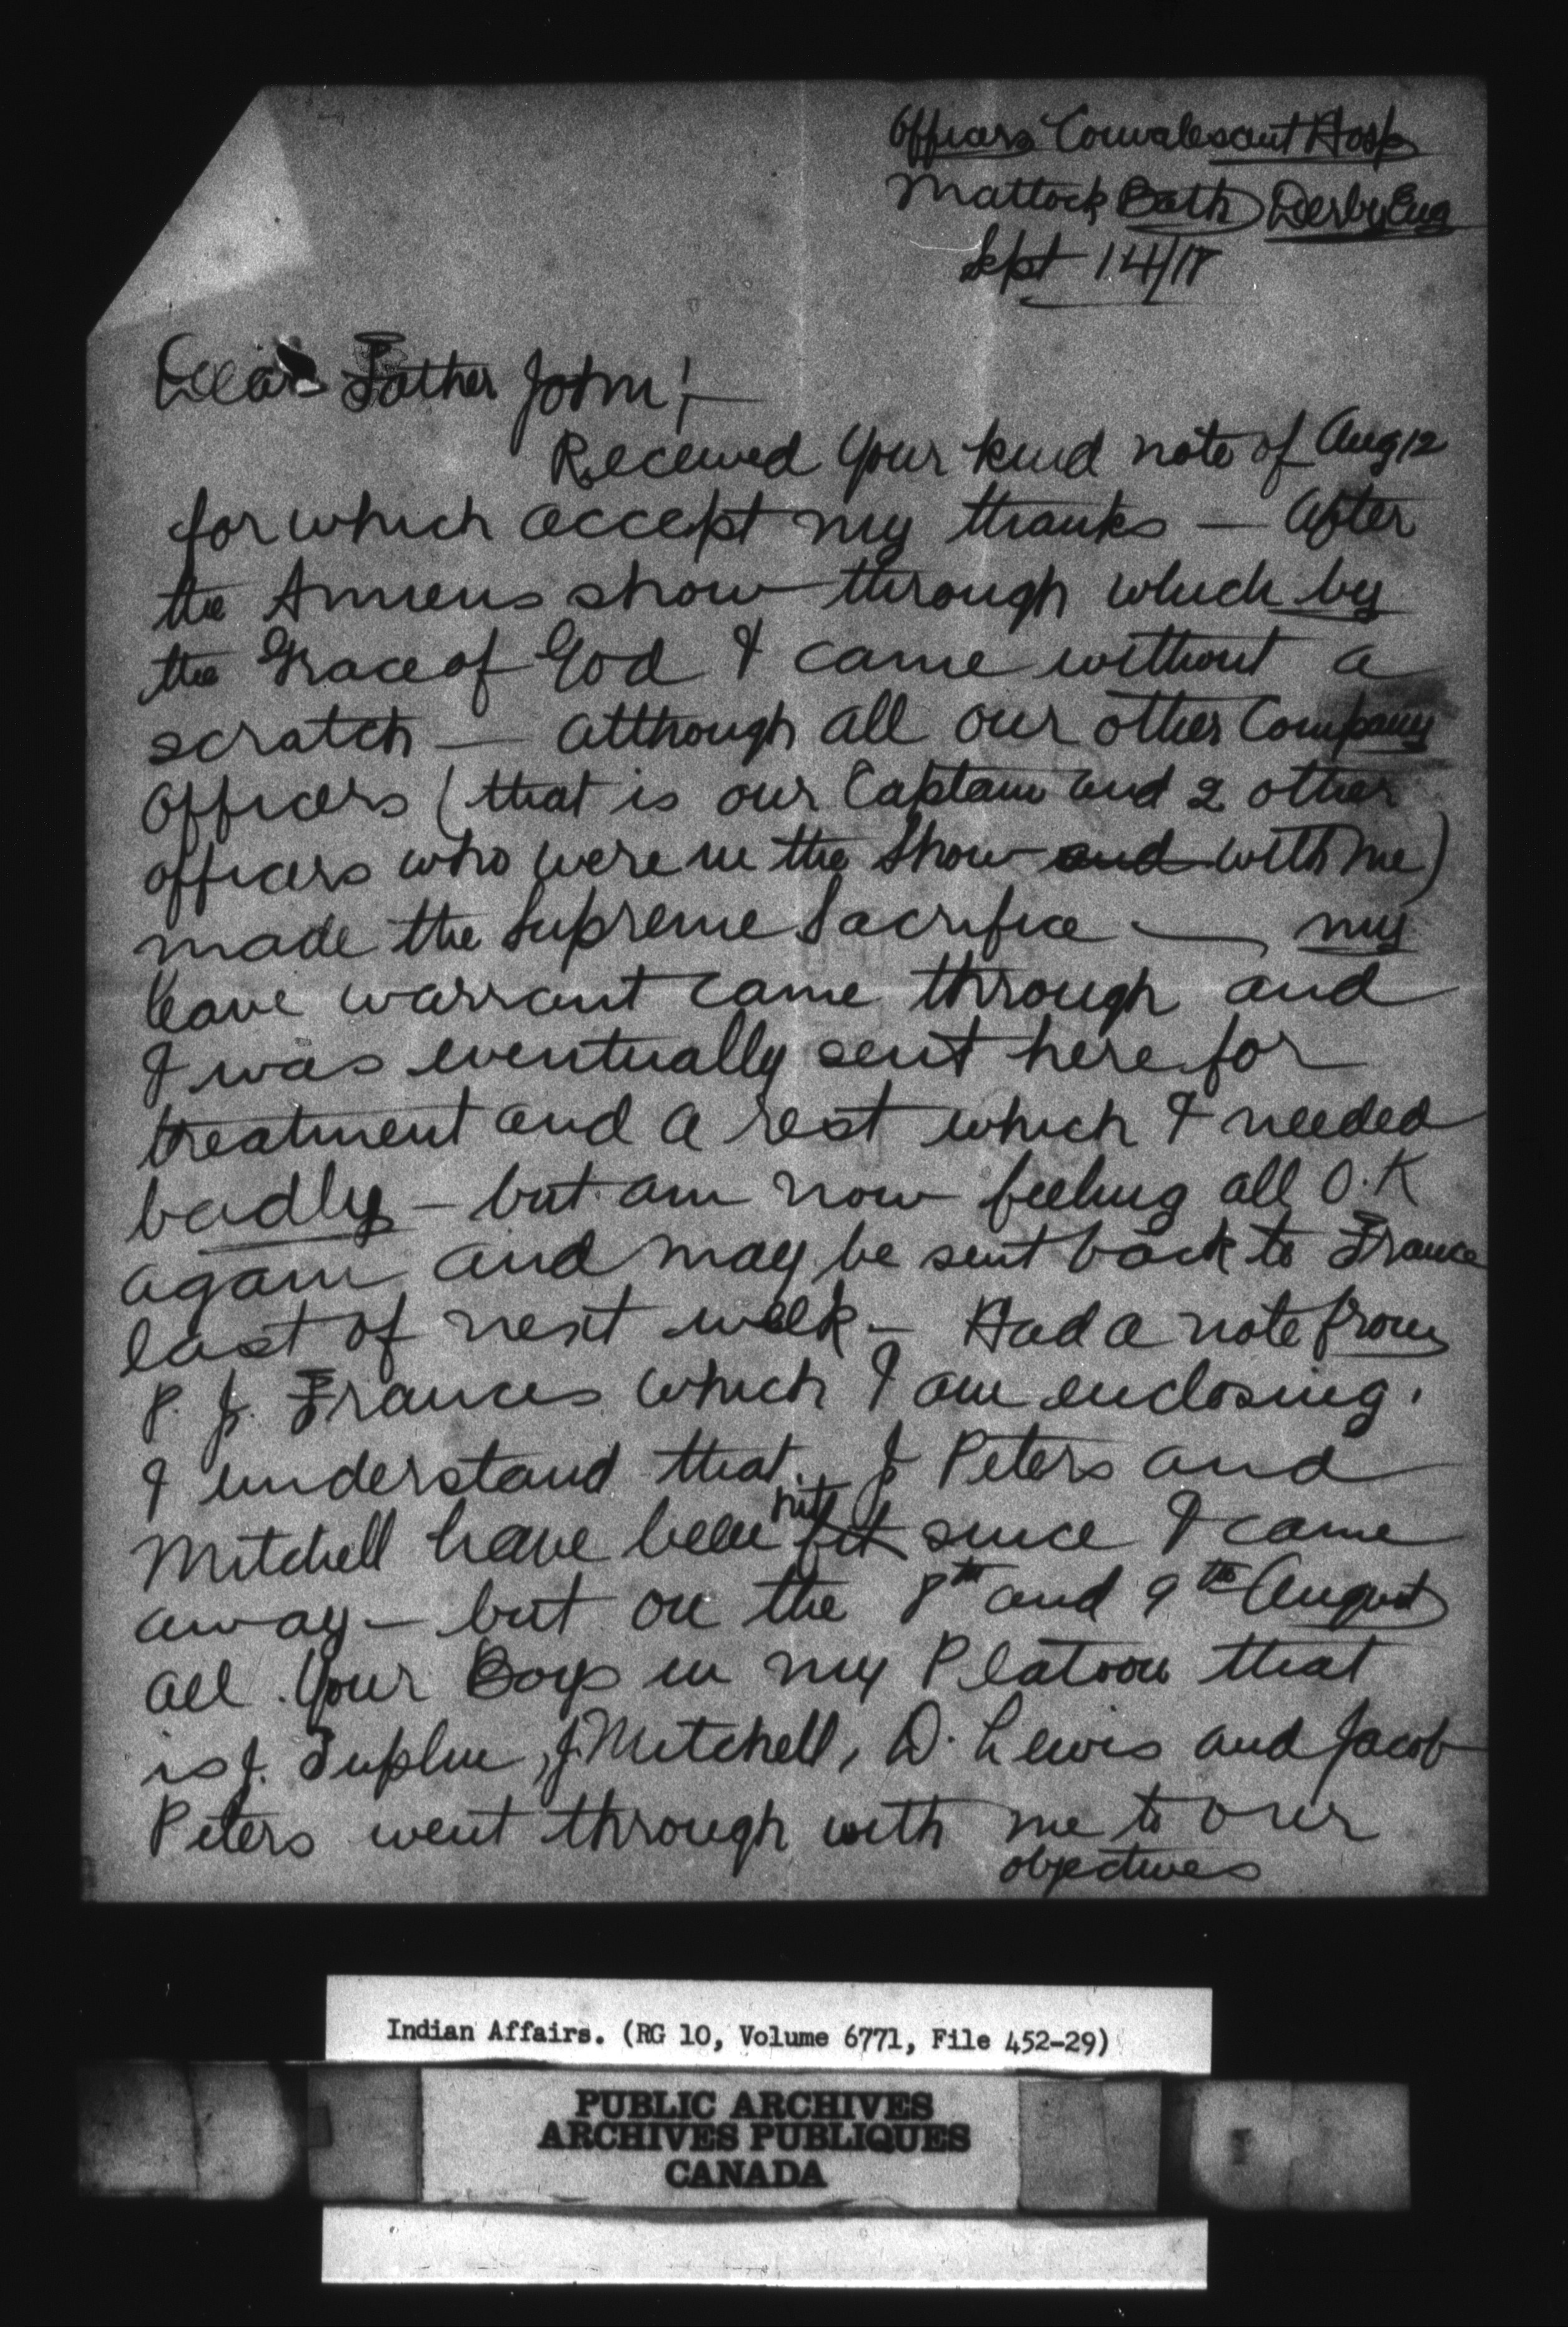 Officers Convalesant Hosp
Mattock Bath Derby Eng
Sept 14/18
Dear Father John;—
Received your kind note of Aug 12
for which accept my thanks — After
the Amiens show through which by
the Grace of God I came without a
scratch — although all our other Company
Officers (that is our Captain and 2 other
officers who were in the show and with me)
made the Supreme Sacrifice — my
leave warrant came through and
I was eventually sent here for
treatment and a rest which I needed
badly — but am now feeling all O.K
again and may be sent back to France
last of next week — Had a note from
P. J. Frances which I am enclosing.
I understand that J Peters and
Mitchell have been hit since I came
away — but on the 8th and 9th August
all your Boys in my Platoon that
is J. Tuplin, J. Mitchell, D. Lewis and Jacob
Peters went through with me to our
objectives
Indian Affairs. (RG 10, Volume 6771, File 452-29)
PUBLIC ARCHIVES
ARCHIVES PUBLIQUES
CANADA